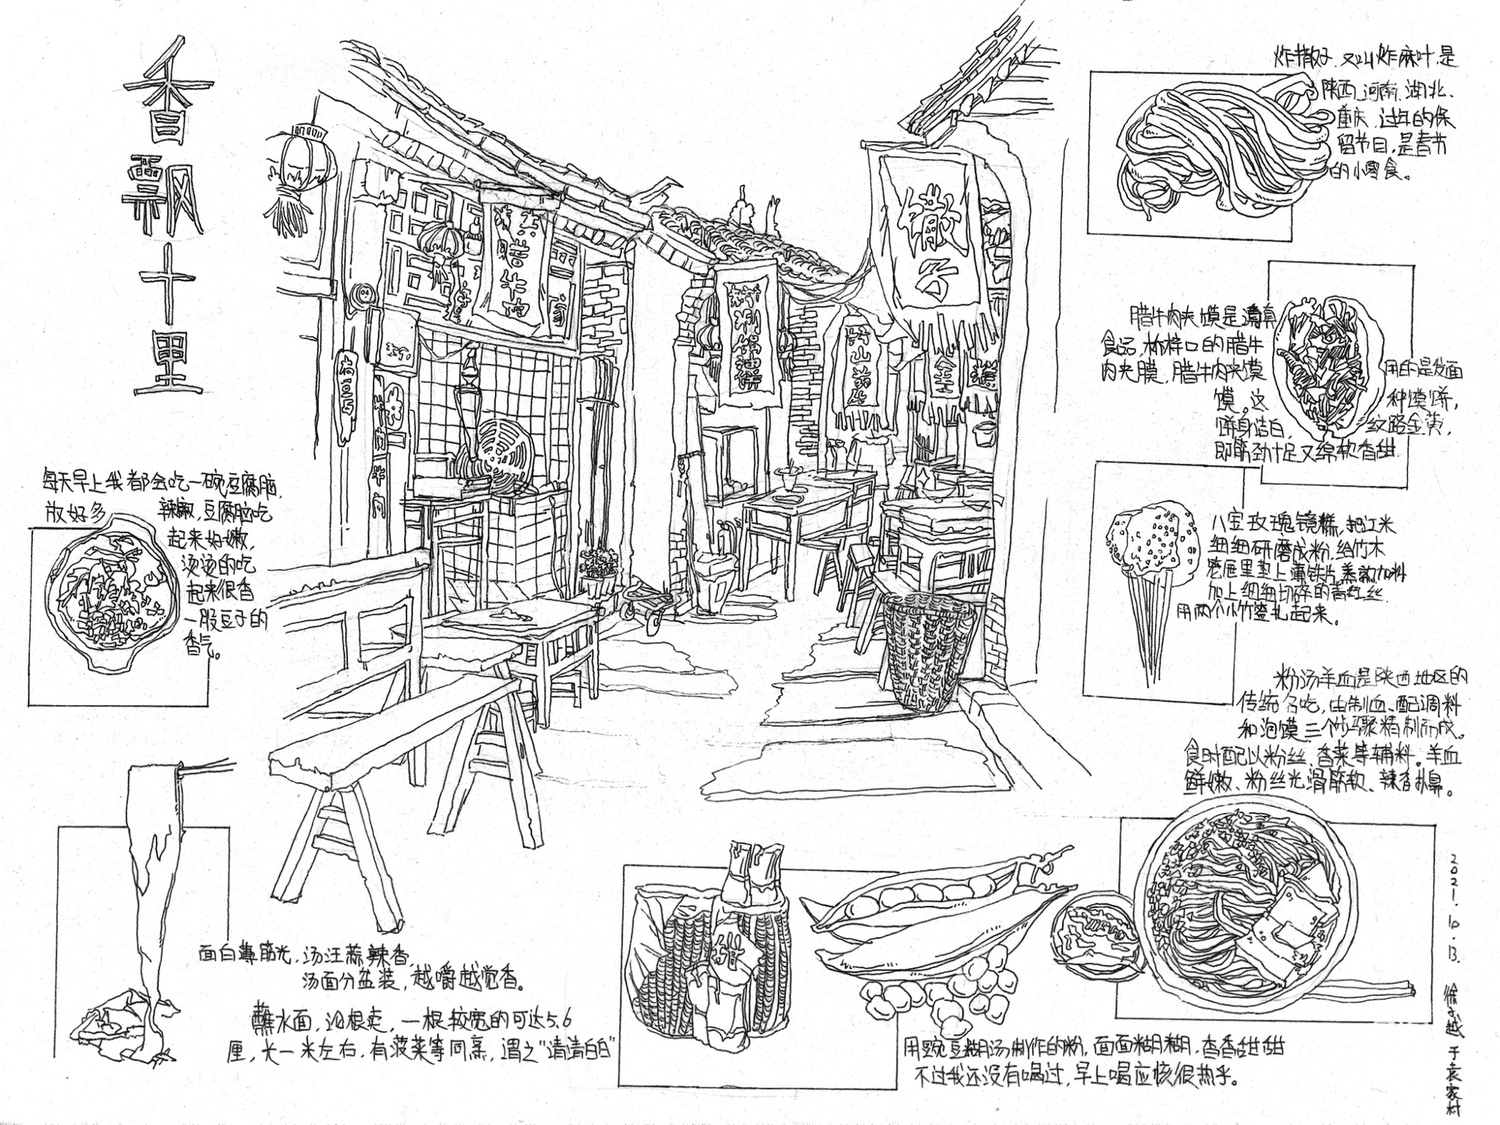 香飘十里
炸撒子.又叫炸麻叶.是
陕西、河南、湖北、
重庆,过年的保
留节目,是春节
的小零食。
腊牛肉夹馍是清真
食品,
口的腊牛
肉夹馍,腊牛肉夹馍
用的是发面
馍。这
种馍饼,
饼身洁白,
纹路金黄,
即筋劲十足又绵软香甜
八宝玫瑰镜糕,把江米
细细研磨成粉.给竹木
笼屉里垫上薄铁片,蒸
加上细细切碎的青红丝
用两个小竹签扎起来。
粉汤羊血是陕西地区的
传统名吃,由制血、配调料
和泡馍三个步骤精制而成。
食时配以粉丝、香菜等辅料。羊血
鲜嫩、粉丝光滑筋软、辣香扑鼻。
每天早上我都会吃一碗豆腐脑,
放好多
辣椒,豆腐脑吃
起来好嫩,
烫烫的吃
起来很香
一股豆子的
香气。
糤子
腊牛肉
家
面白薄筋光,汤汪蒜辣香
汤面分盆装,越嚼越觉香。
蘸水面,论根卖,一根较宽的可达5.6
厘,长一米左右,有菠菜等同煮,谓之"清清白白"
甜
用豌豆糊汤制作的粉,面面糊糊,香香甜甜
不过我还没有喝过,早上喝应该很热乎。
2021.10.13.
徐子越 于袁家村